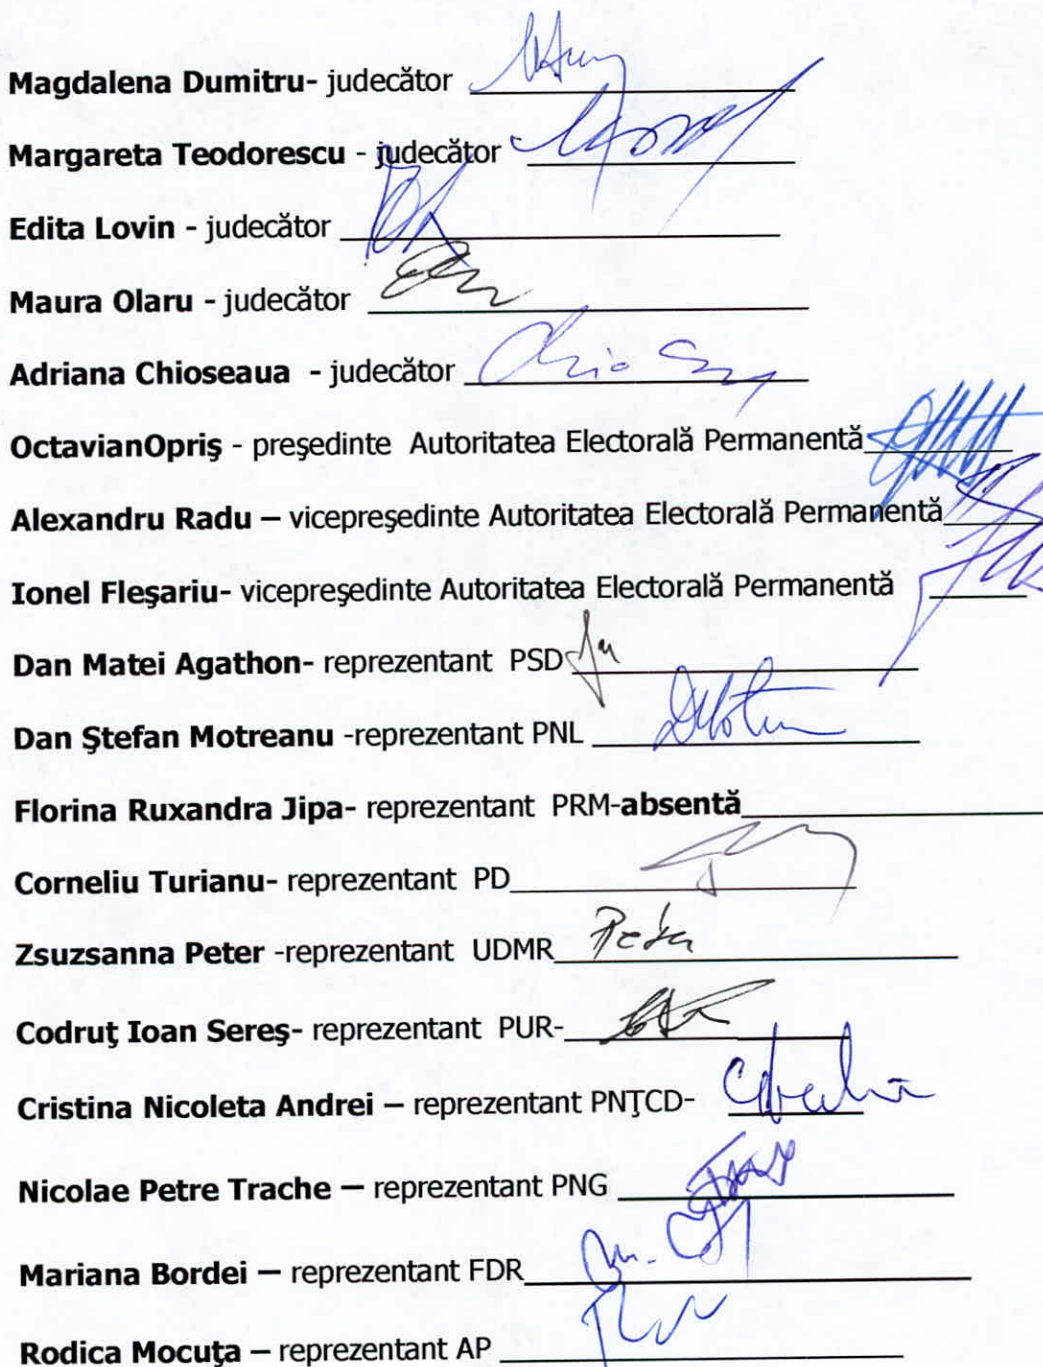 Magdalena Dumitru- judecător
Margareta Teodorescu - judecător
Edita Lovin - judecător
Maura Olaru - judecător
Adriana Chioseaua - judecător
OctavianOpriş - preşedinte Autoritatea Electorală Permanentă
Alexandru Radu – vicepreşedinte Autoritatea Electorală Permanentă
Ionel Fleşariu- vicepreşedinte Autoritatea Electorală Permanentă
Dan Matei Agathon- reprezentant PSD
Dan Ştefan Motreanu -reprezentant PNL
Florina Ruxandra Jipa- reprezentant PRM-absentă
Corneliu Turianu- reprezentant PD
Zsuzsanna Peter -reprezentant UDMR Peter
Codruţ Ioan Sereş- reprezentant PUR-
Cristina Nicoleta Andrei – reprezentant PNŢCD-
Nicolae Petre Trache – reprezentant PNG
Mariana Bordei – reprezentant FDR
Rodica Mocuţa – reprezentant AP